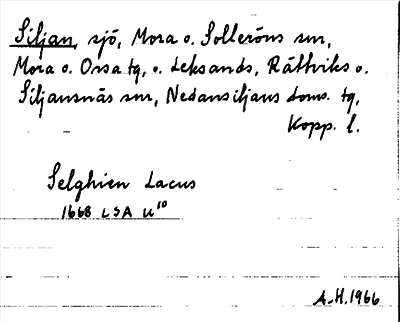 Siljan, sjö, Mora o. Solleröns snr,
Mora o. Orsa tg, o. Leksands, Rättviks o.
Siljansnäs snr, Nedansiljans doms. tg,
Kopp. l.
Selghien Lacus
1668 LSA U¹⁰
A.H.1966